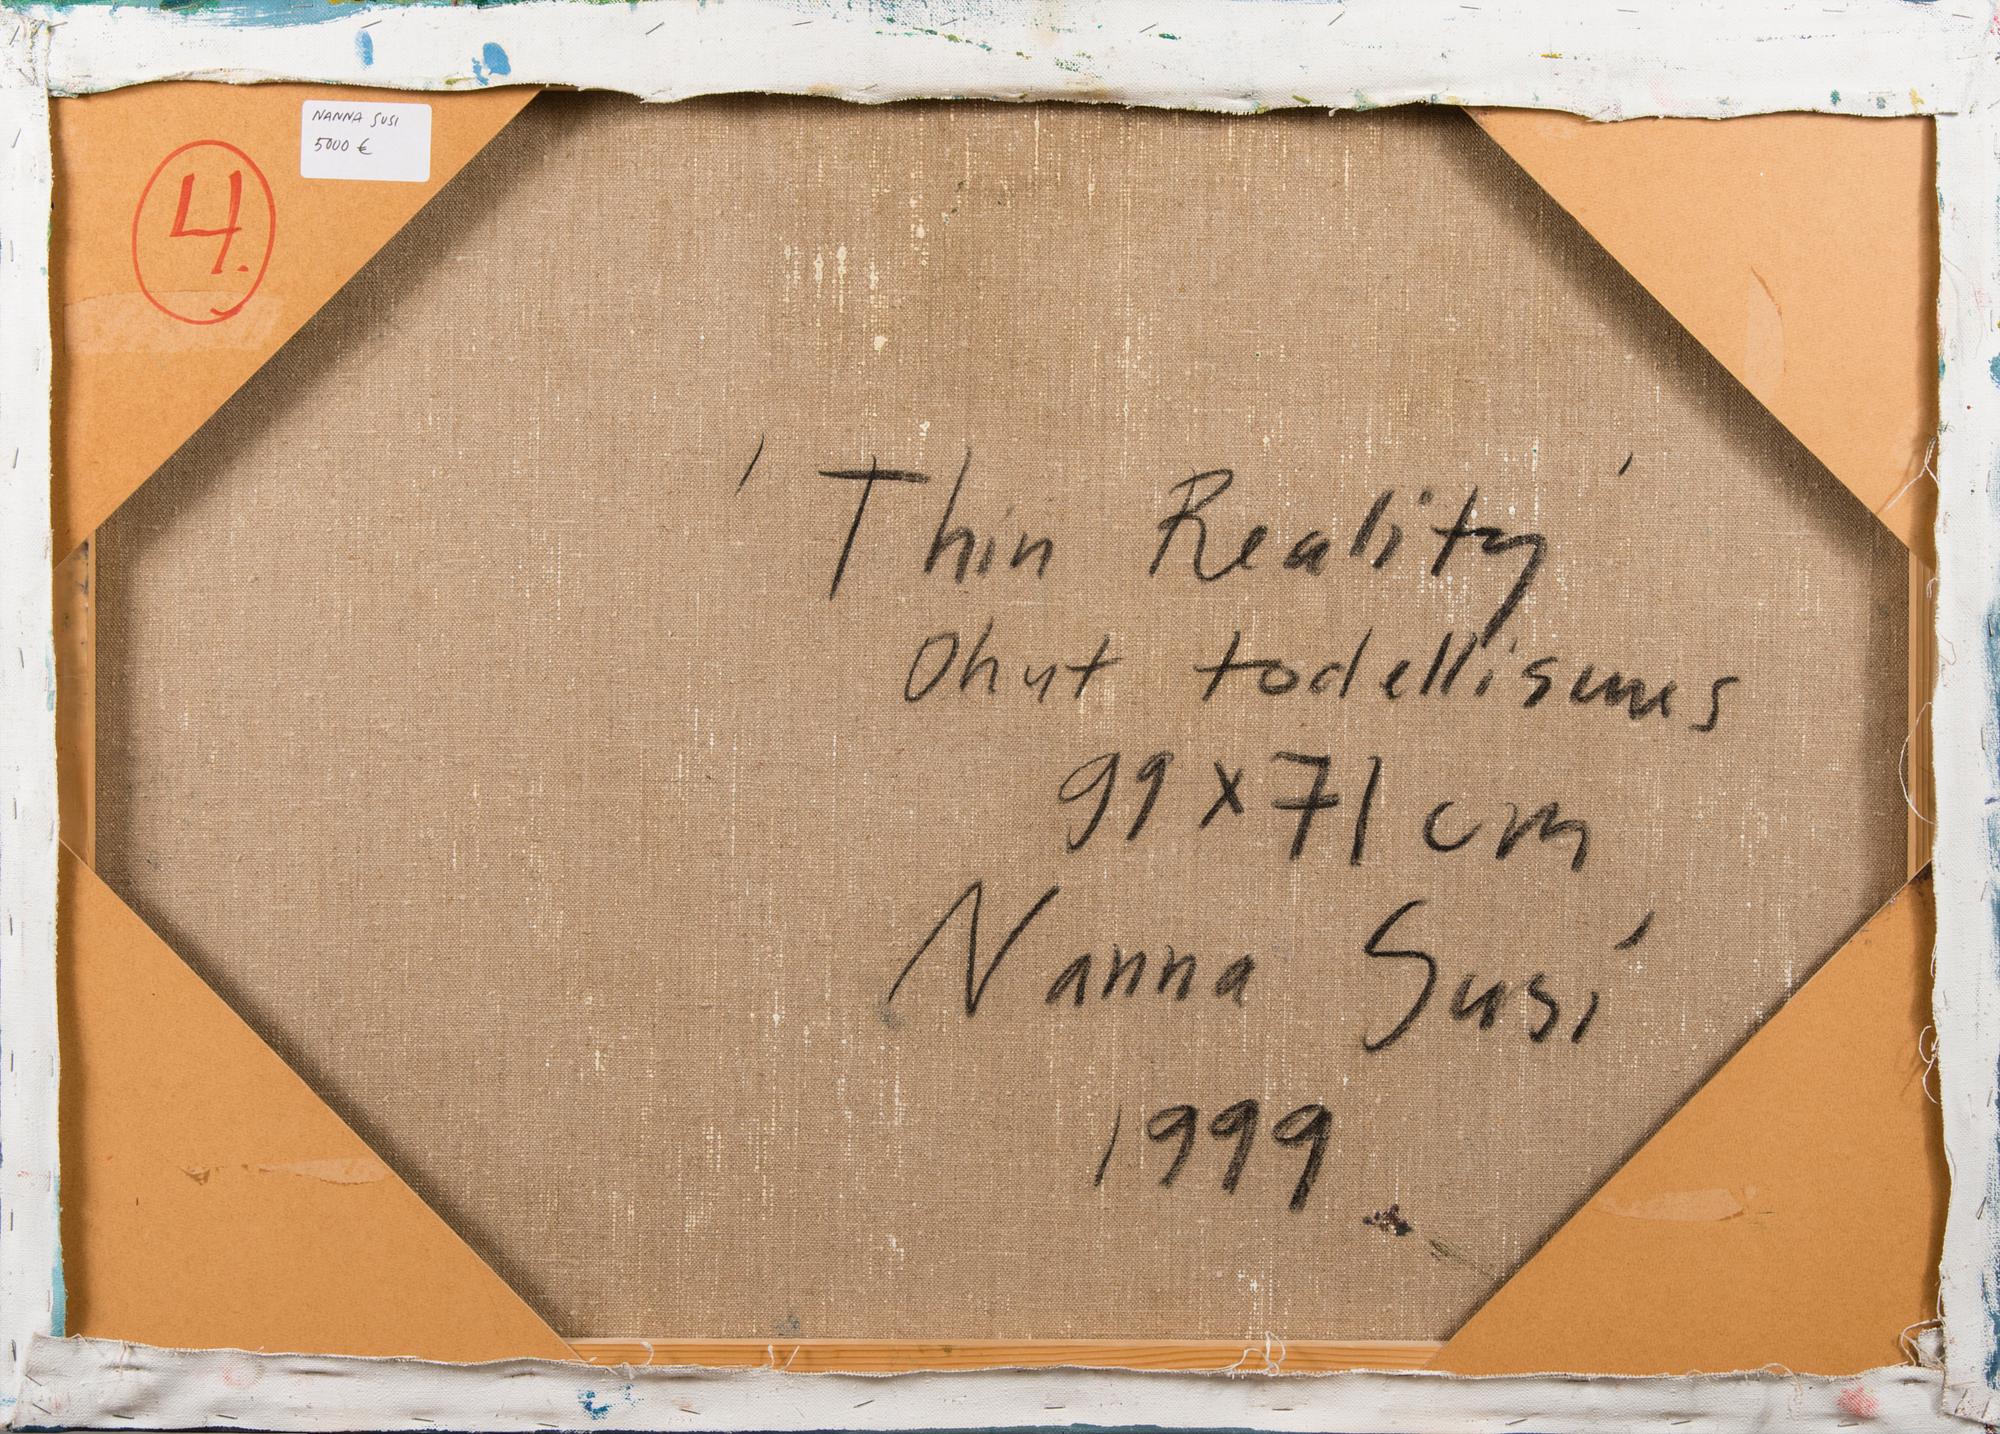 NANNA SUSI
5000 €
4.
'Thin Reality'
Ohut todellisuus
99 x 71 cm
Nanna Susi
1999